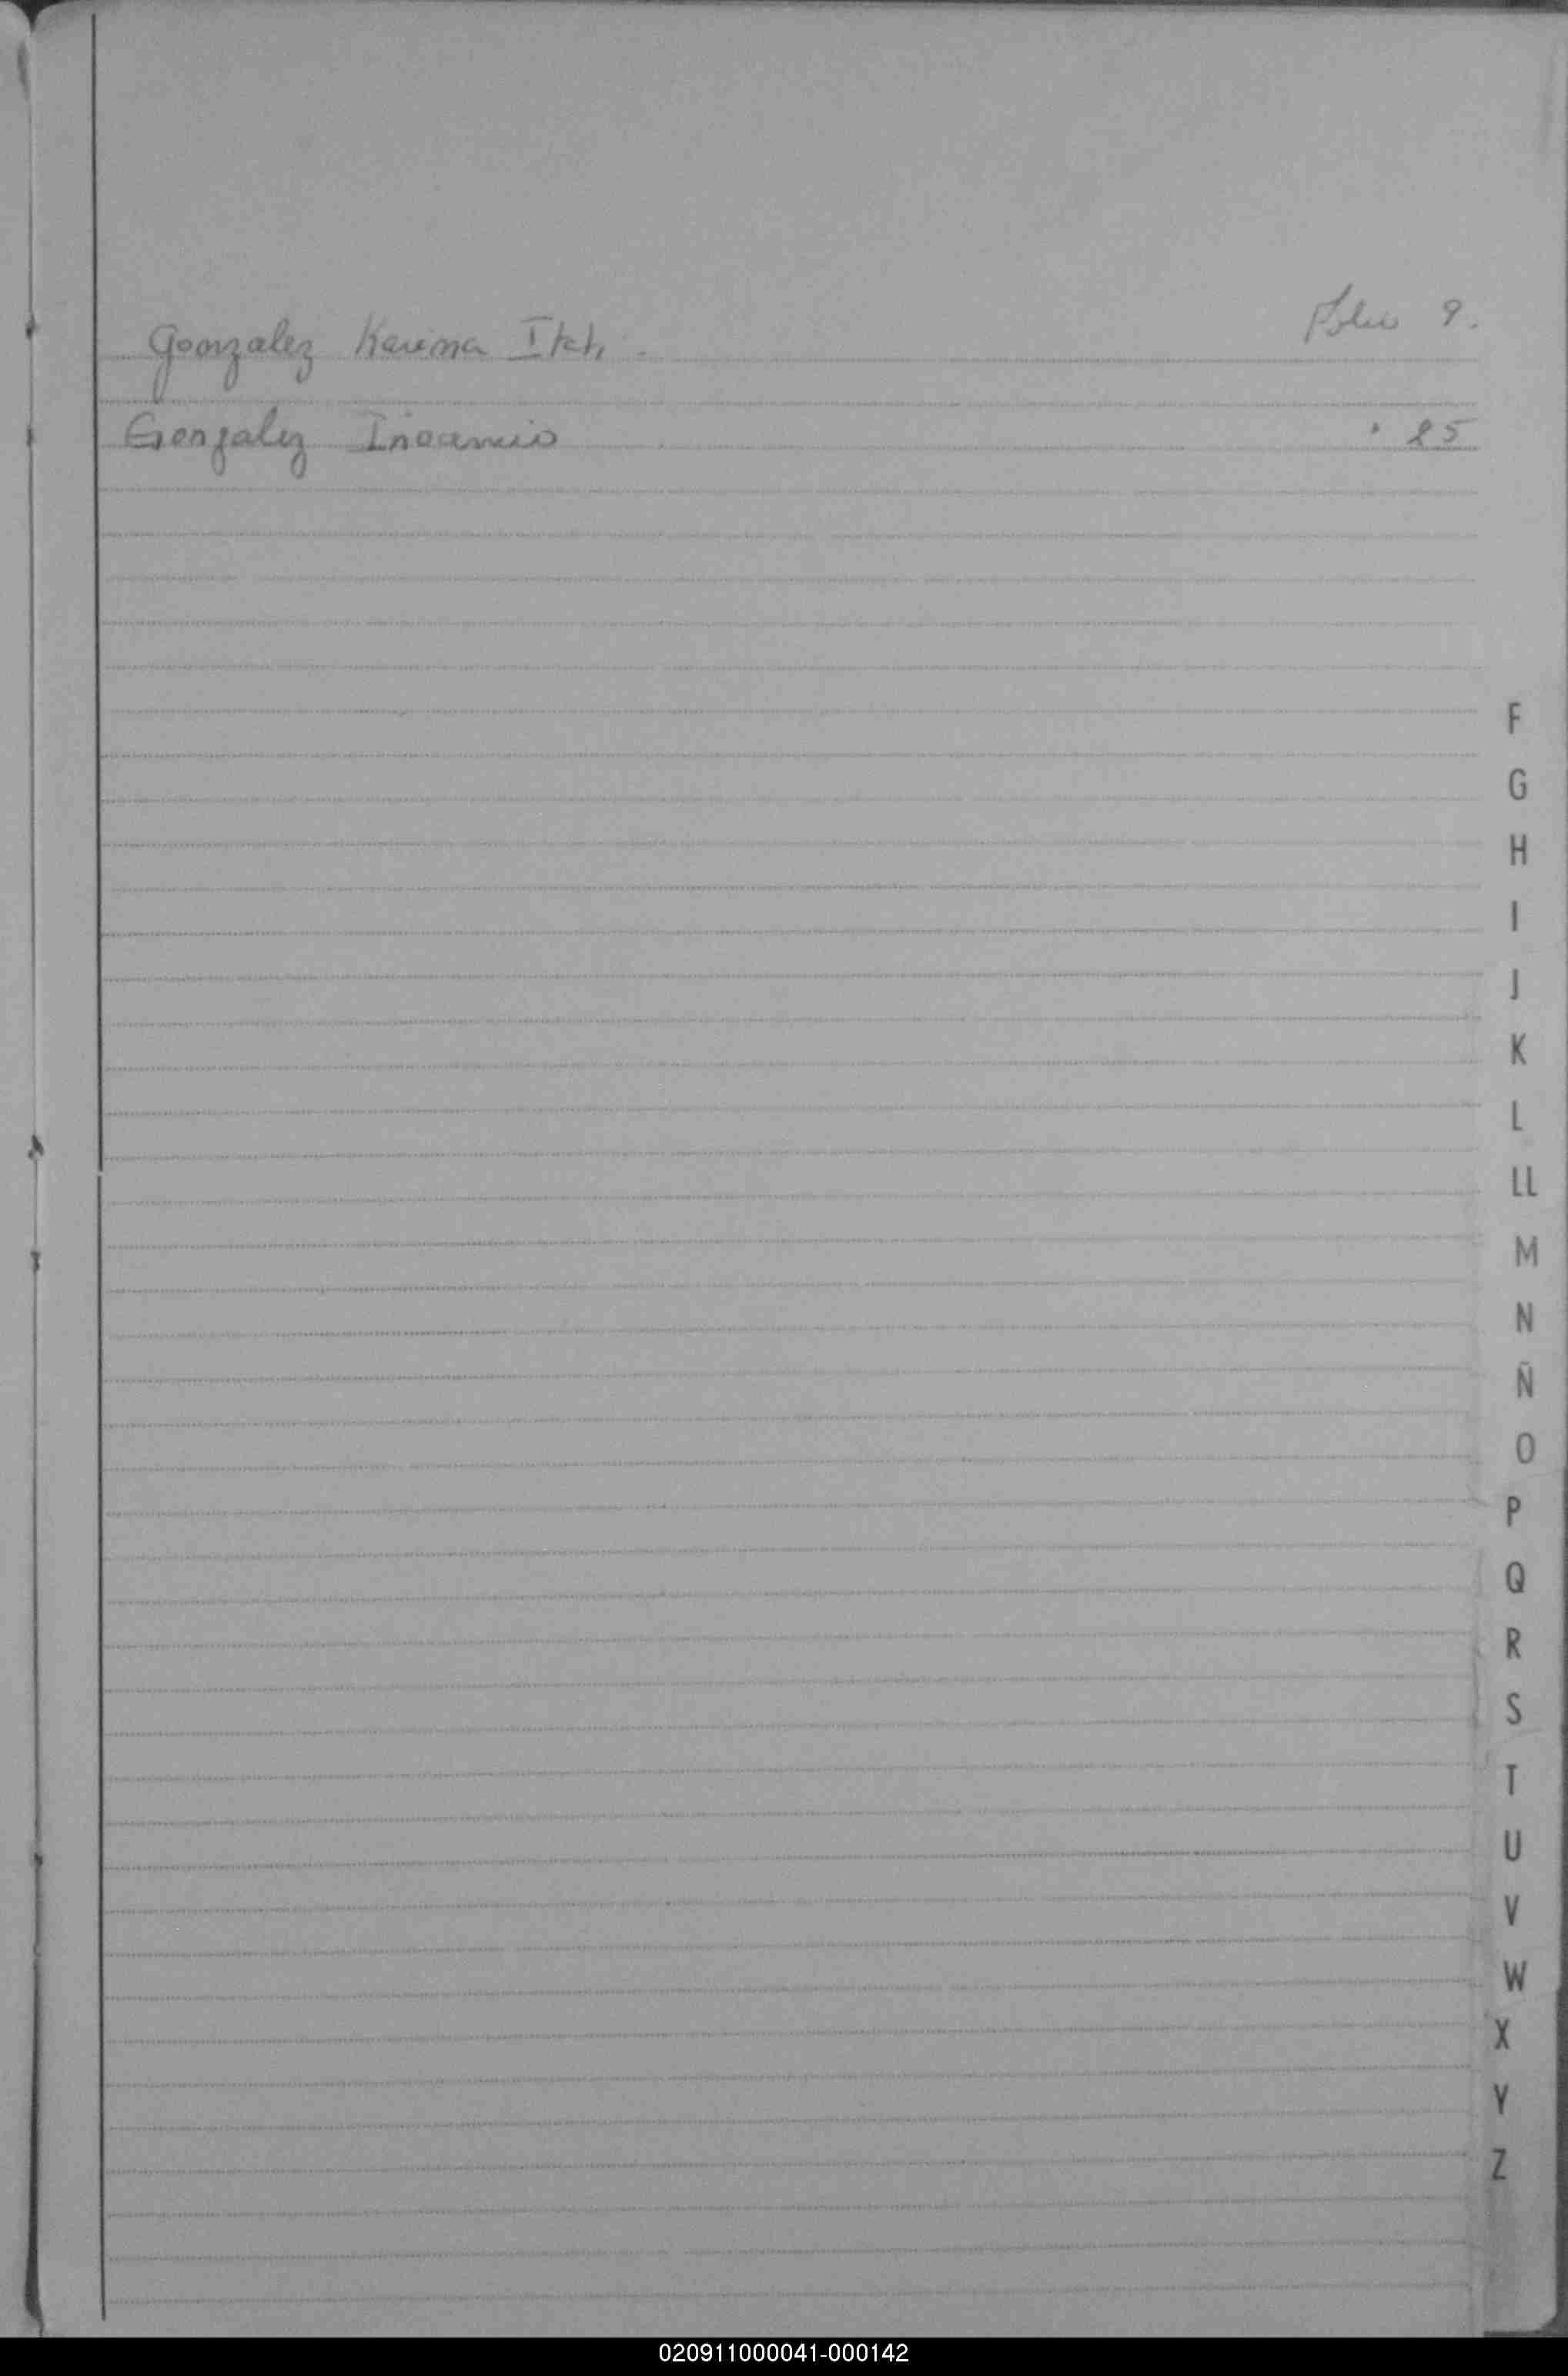 Gonzalez Karina Itati. Folio 9.
Gonzalez Inocencio " 25
F
G
H
I
J
K
L
LL
M
N
Ñ
O
P
Q
R
S
T
U
V
W
X
Y
Z
020911000041-000142